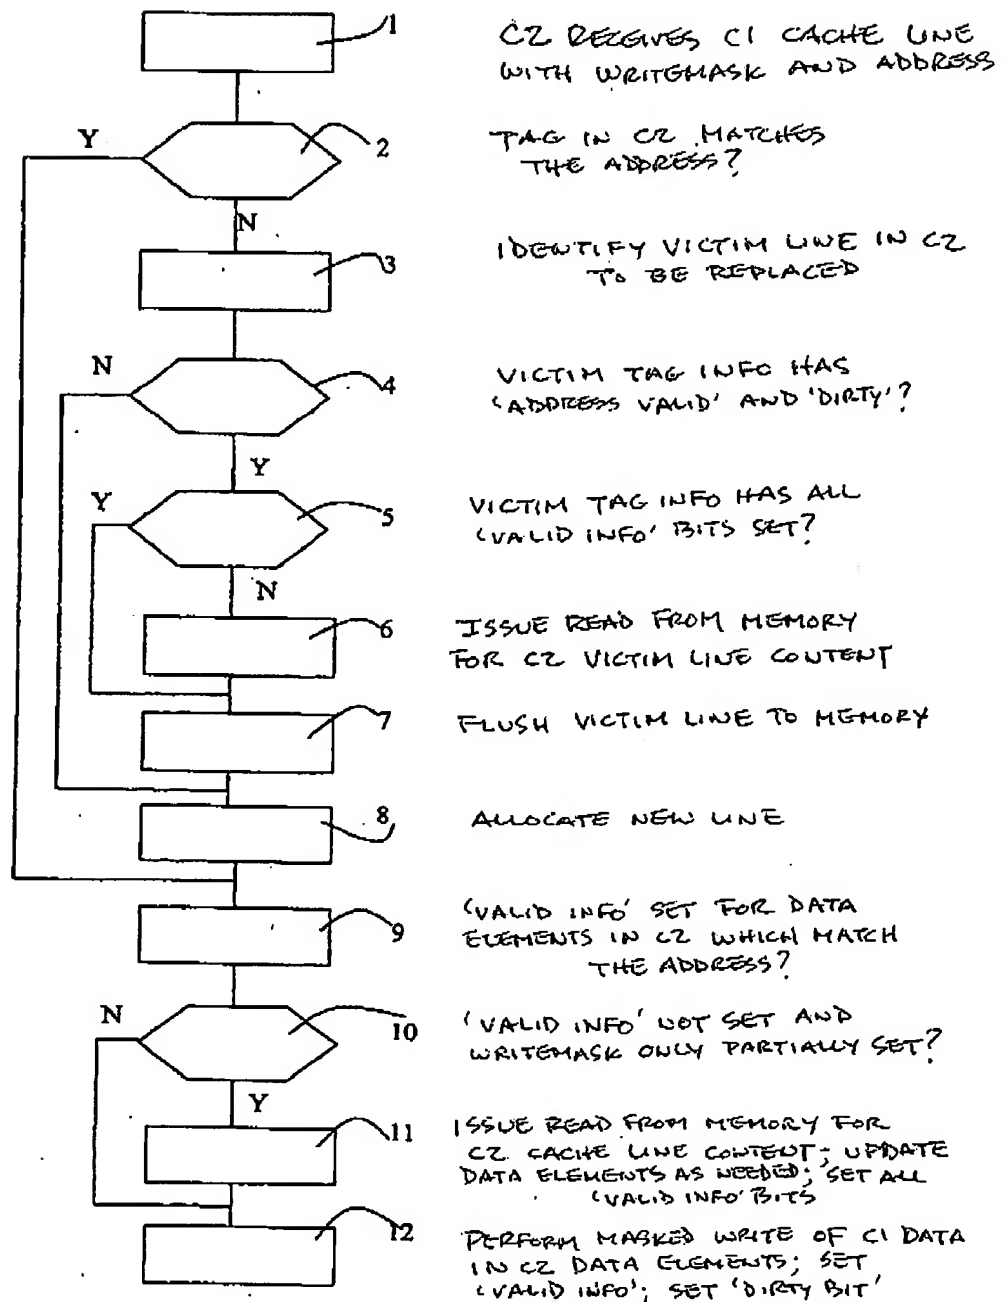 1
C2 RECEIVES C1 CACHE LINE
WITH WRITEMASK AND ADDRESS
Y
2
TAG IN C2 MATCHES
THE ADDRESS?
N
3
IDENTIFY VICTIM LINE IN C2
TO BE REPLACED
N
4
VICTIM TAG INFO HAS
'ADDRESS VALID' AND 'DIRTY'?
Y
Y
5
VICTIM TAG INFO HAS ALL
'VALID INFO' BITS SET?
N
6
ISSUE READ FROM MEMORY
FOR C2 VICTIM LINE CONTENT
7
FLUSH VICTIM LINE TO MEMORY
8
ALLOCATE NEW LINE
9
'VALID INFO' SET FOR DATA
ELEMENTS IN C2 WHICH MATCH
THE ADDRESS?
N
10
'VALID INFO' NOT SET AND
WRITEMASK ONLY PARTIALLY SET?
Y
11
ISSUE READ FROM MEMORY FOR
C2 CACHE LINE CONTENT; UPDATE
DATA ELEMENTS AS NEEDED; SET ALL
'VALID INFO' BITS
12
PERFORM MASKED WRITE OF C1 DATA
IN C2 DATA ELEMENTS; SET
'VALID INFO'; SET 'DIRTY BIT'